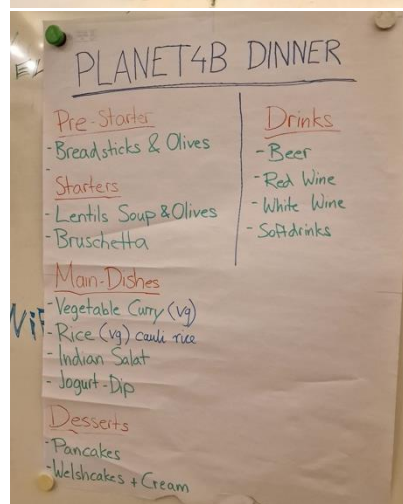 PLANET4B DINNER
Pre-Starter
- Breadsticks & Olives
-
Starters
- Lentils Soup & Olives
- Bruschetta
Main-Dishes
- Vegetable Curry (vg)
- Rice (vg) cauli rice
- Indian Salat
- Jogurt-Dip
Desserts
- Pancakes
- Welshcakes + Cream
Drinks
- Beer
- Red Wine
- White Wine
- Softdrinks